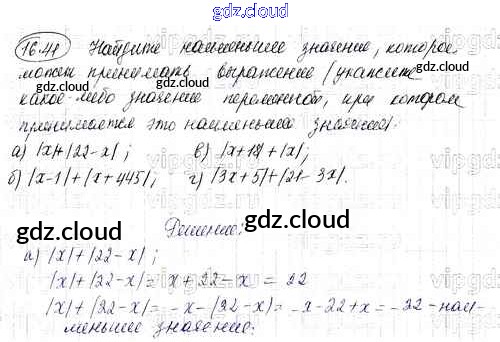 gdz.cloud
16.41 Найдите наименьшее значение, которое
может принимать выражение (укажите
какое-либо значение переменной, при котором
принимается это наименьшее значение).
а) |x|+|22-x|; в) |x+18|+|x|;
б) |x-1|+|x+445|; г) |3x+5|+|21-3x|.
gdz.cloud
gdz.cloud
gdz.cloud
Решение:
gdz.cloud
а) |x|+|22-x|;
|x|+|22-x|= x+22-x = 22
|x|+|22-x|= -x-(22-x)= -x-22+x = -22 - наи-
меньшее значение.
gdz.cloud
gdz.cloud